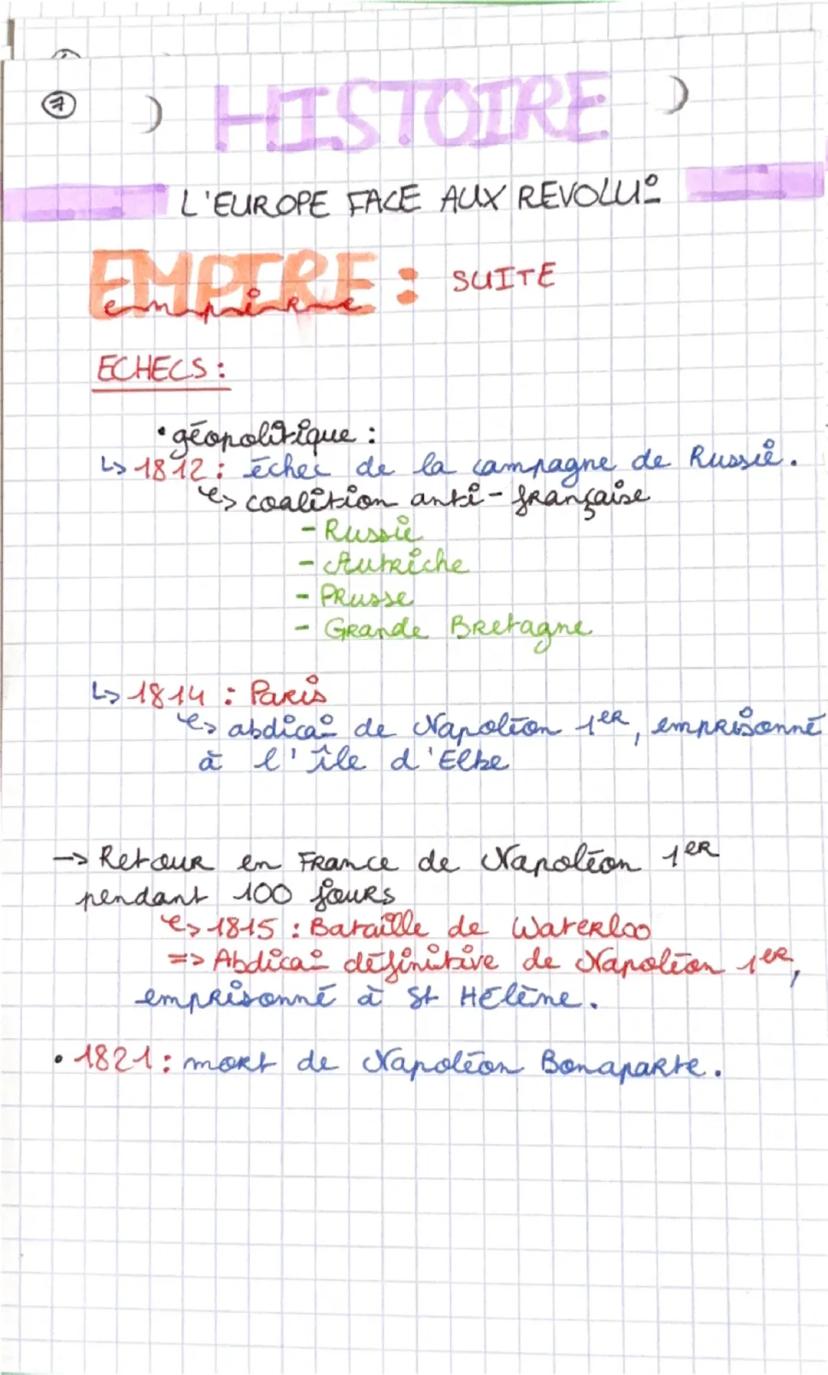 7
HISTOIRE
L'EUROPE FACE AUX REVOLU°
EMPIRE : SUITE
empire
ECHECS :
• géopolitique :
↳ 1812 : échec de la campagne de Russie.
↳ coalition anti-française
- Russie
- Autriche
- Prusse
- Grande Bretagne
↳ 1814 : Paris
↳ abdica° de Napoléon 1er, emprisonné
à l'île d'Elbe
-> Retour en France de Napoléon 1er
pendant 100 jours
↳ 1815 : Bataille de Waterloo
=> Abdica° définitive de Napoléon 1er,
emprisonné à St Hélène.
• 1821 : mort de Napoléon Bonaparte.